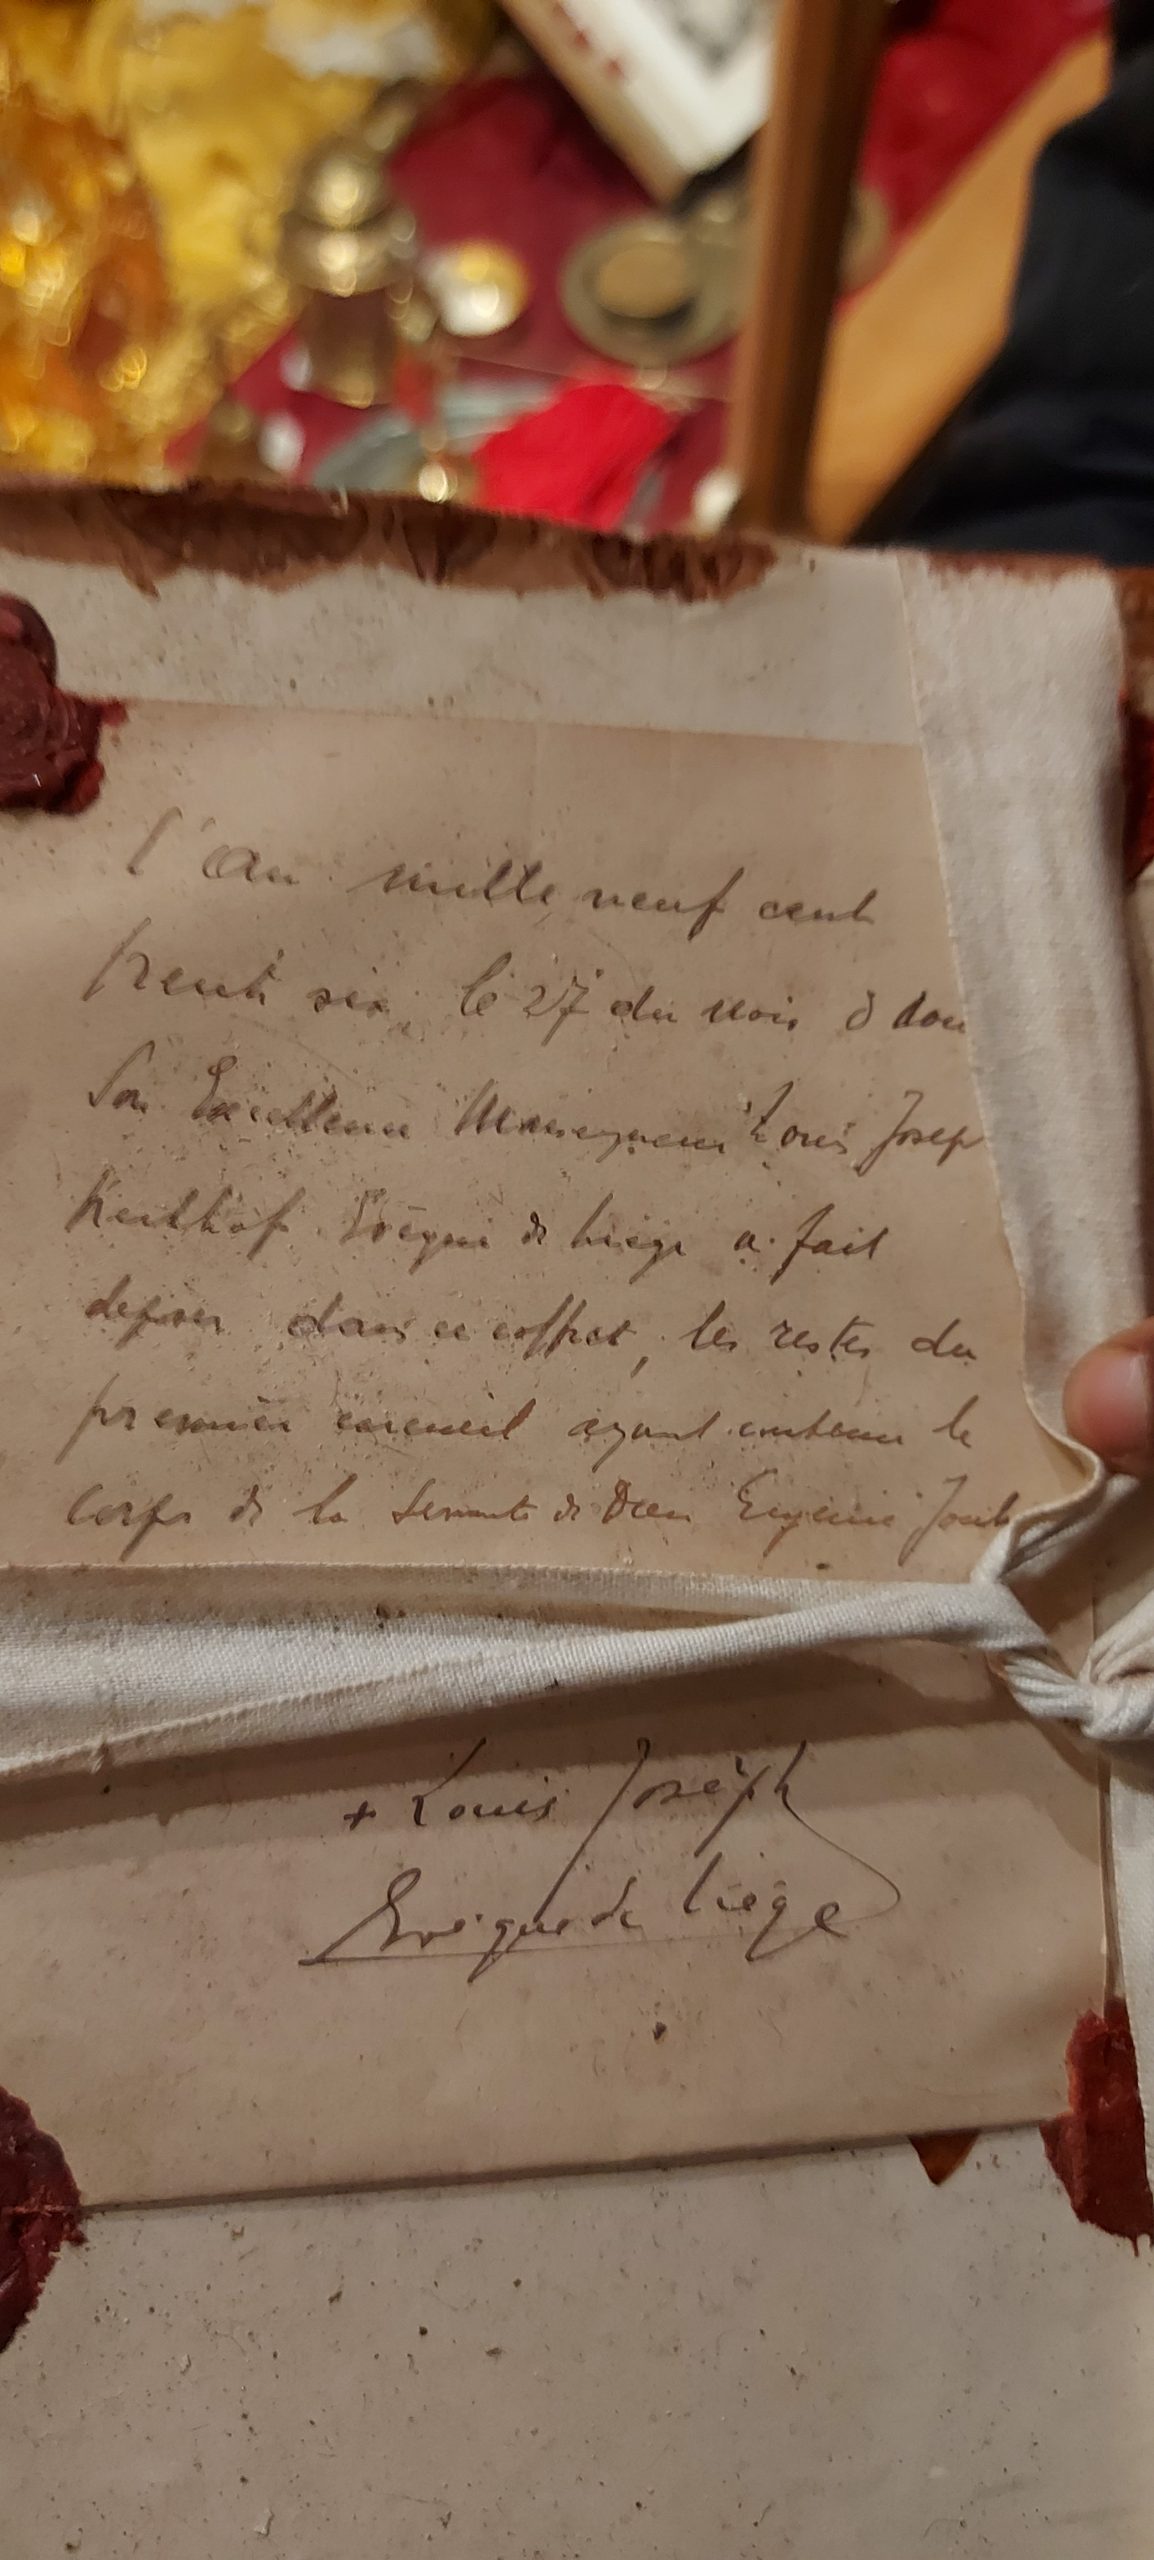 L'an mille neuf cent
trente six, le 27 du mois d'Aou
Son Excellence Monseigneur Louis Josep
Kerkhof Evêque de Liége a fait
deposer dans ce coffret, les restes du
premier cercueil ayant contenu le
corps de la Servante de Dieu Eugénie Joub
+ Louis Joseph
Evêque de Liége